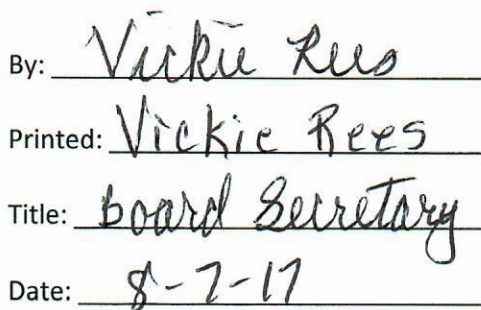 By: Vickie Rees
Printed: Vickie Rees
Title: Board Secretary
Date: 8-7-17